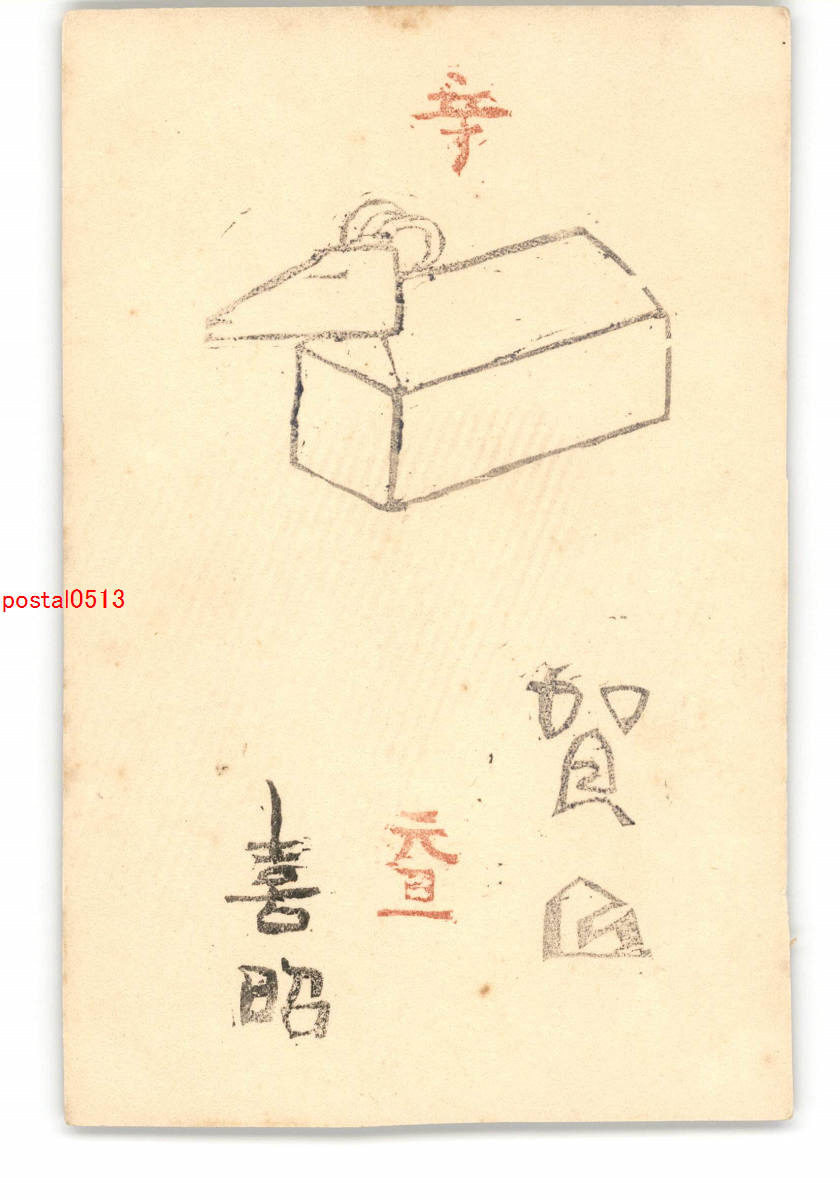 賀
元旦
喜昭
postal0513